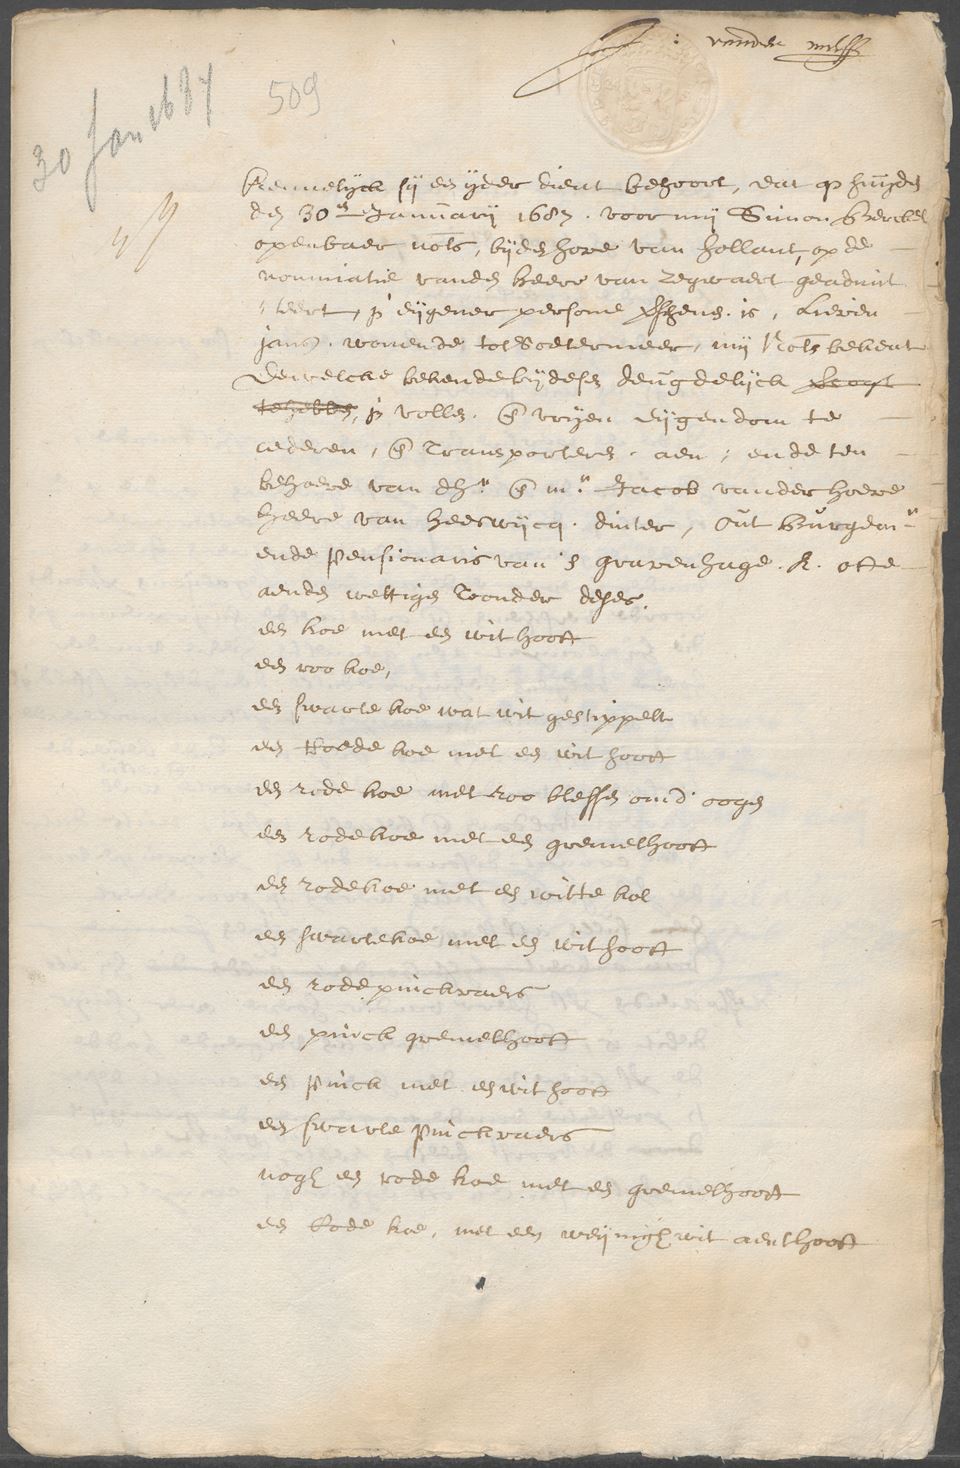 : vander
30 Jan 1687
509
Kennelijck sij een ijder dient behoort, dat op huijden
den 30en January 1687. voor mij Simon
openbaer nots, bijden hove van hollant, op de
nominatie vanden heere van Zegwaert geadmit
teert, in eijgener persoone is, Lieven
jansz. wonende tot Soetermeer, mij Nots bekent
dewelcke bekende bij desen deugdelijck
te hebben, in vollen. en vrijen eijgendom te
cederen, en Transporteren. aen, ende ten
behoeve van dhr. en mr. Jacob vander hoeve
heere van heeswijcq. dinter, out Burgemr
ende pensionaris van s gravenhage. &. ofte
aenden wettigen Toonder deses.
een koe met een wit hooft
een roo koe,
een swarte koe wat wit gestippelt
een Roede koe met een wit hooft
een rode koe met roo blessen om d' oogen
een rode koe met een gremelhooft
een rode koe met en witte kol
een swarte koe met een wit hooft
een rode pinckvaers
een pinck gremelhooft
een pinck met een wit hooft
een swarte pinckvaers
nogh een rode koe met een gremelhooft
een Rode koe, met een weijnigh wit aent hooft